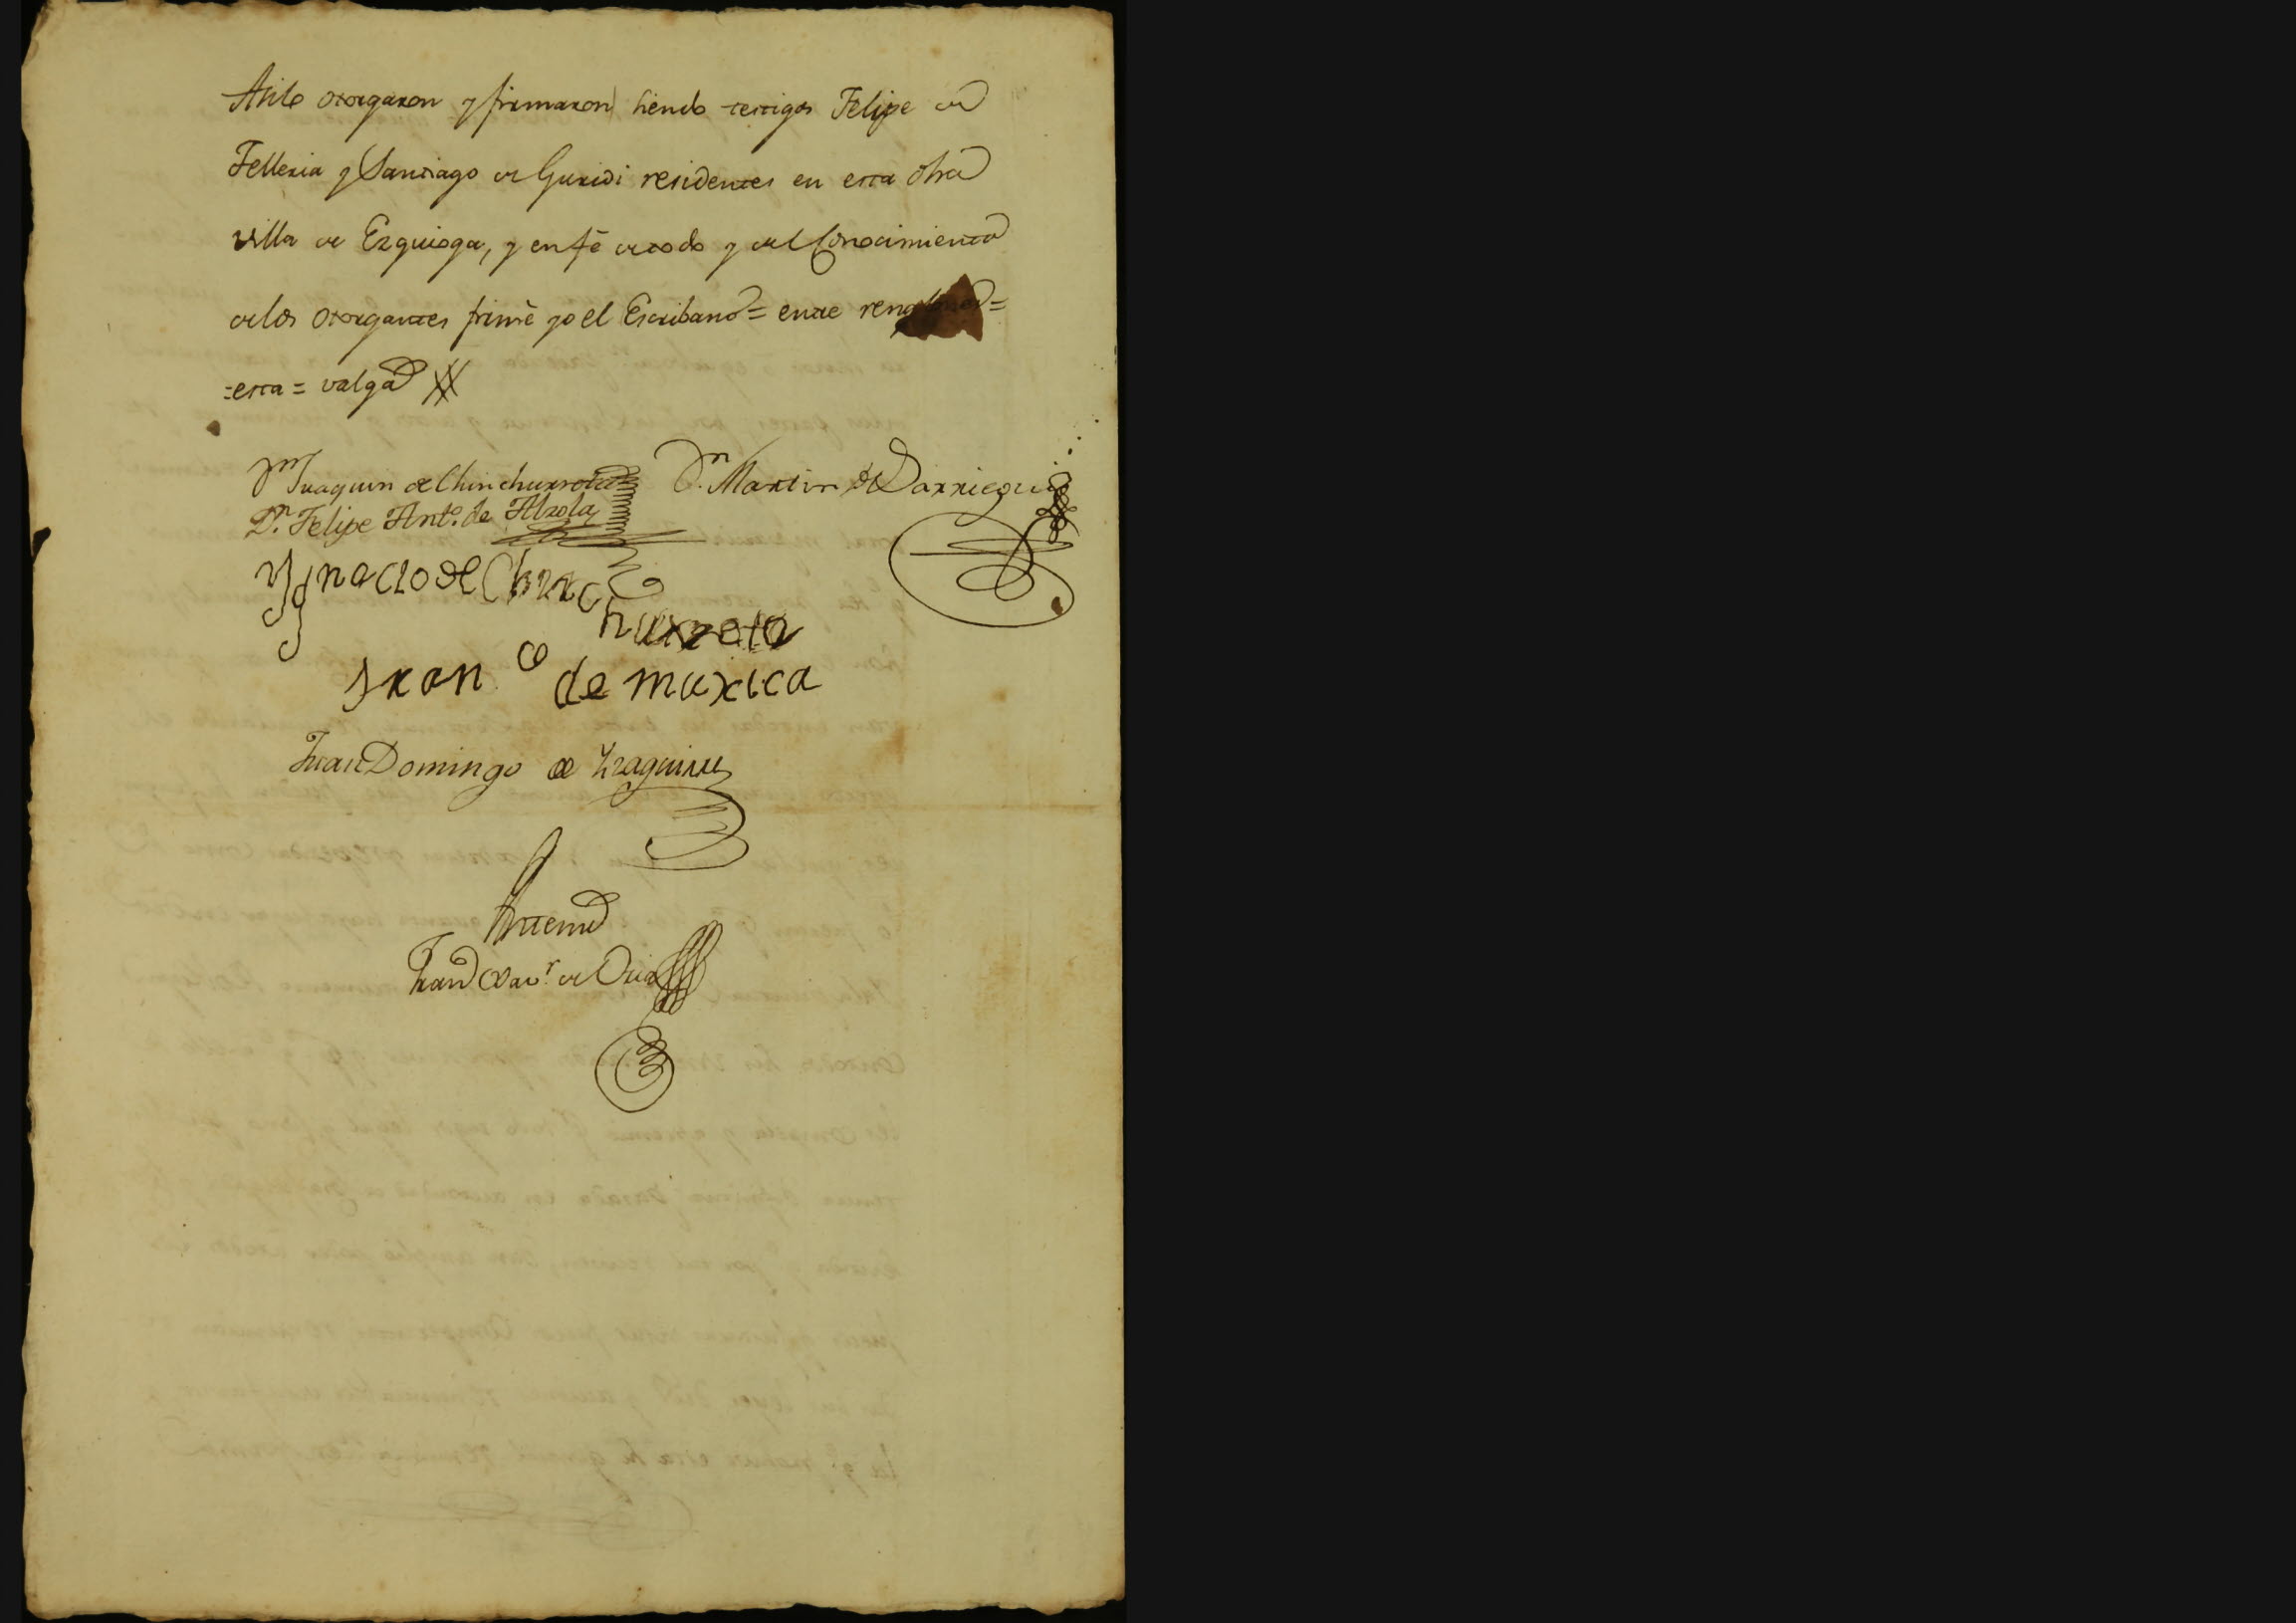 Asilo otorgaron y firmaron siendo testigos Felipe de
Telleria y Santiago de Guridi residentes en esta dha
villa de Ezquioga, y en fé de todo y del Conocimiento
de los otorgantes firmé yo el Escribano = entre renglones =
= esta = valga
Dn Juaquin de Chinchurreta Dn. Martin de Barriegui
Dn. Felipe Anto. de Alzola
Ygnacio de Chinchurreta
Franco de muxica
Juan Domingo de Yzaguirre
Antemi
Xavr. de Oria